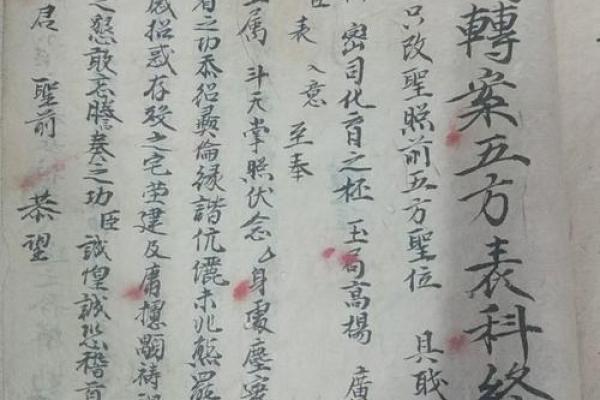 轉案五方表科終
只改聖照前五方聖位 具職
密司化育之柸 玉局高揚 廣
表入意 至奉
属 斗元掌照伏念厶身處塵寰
之功忝紹彛倫緣諧伉儷未兆熊羆
招惑存歿之宅茔建及庸攄顒祷
之懇敢忘謄奏之功臣 誠惶誠恐稽首
君 聖前 恭望